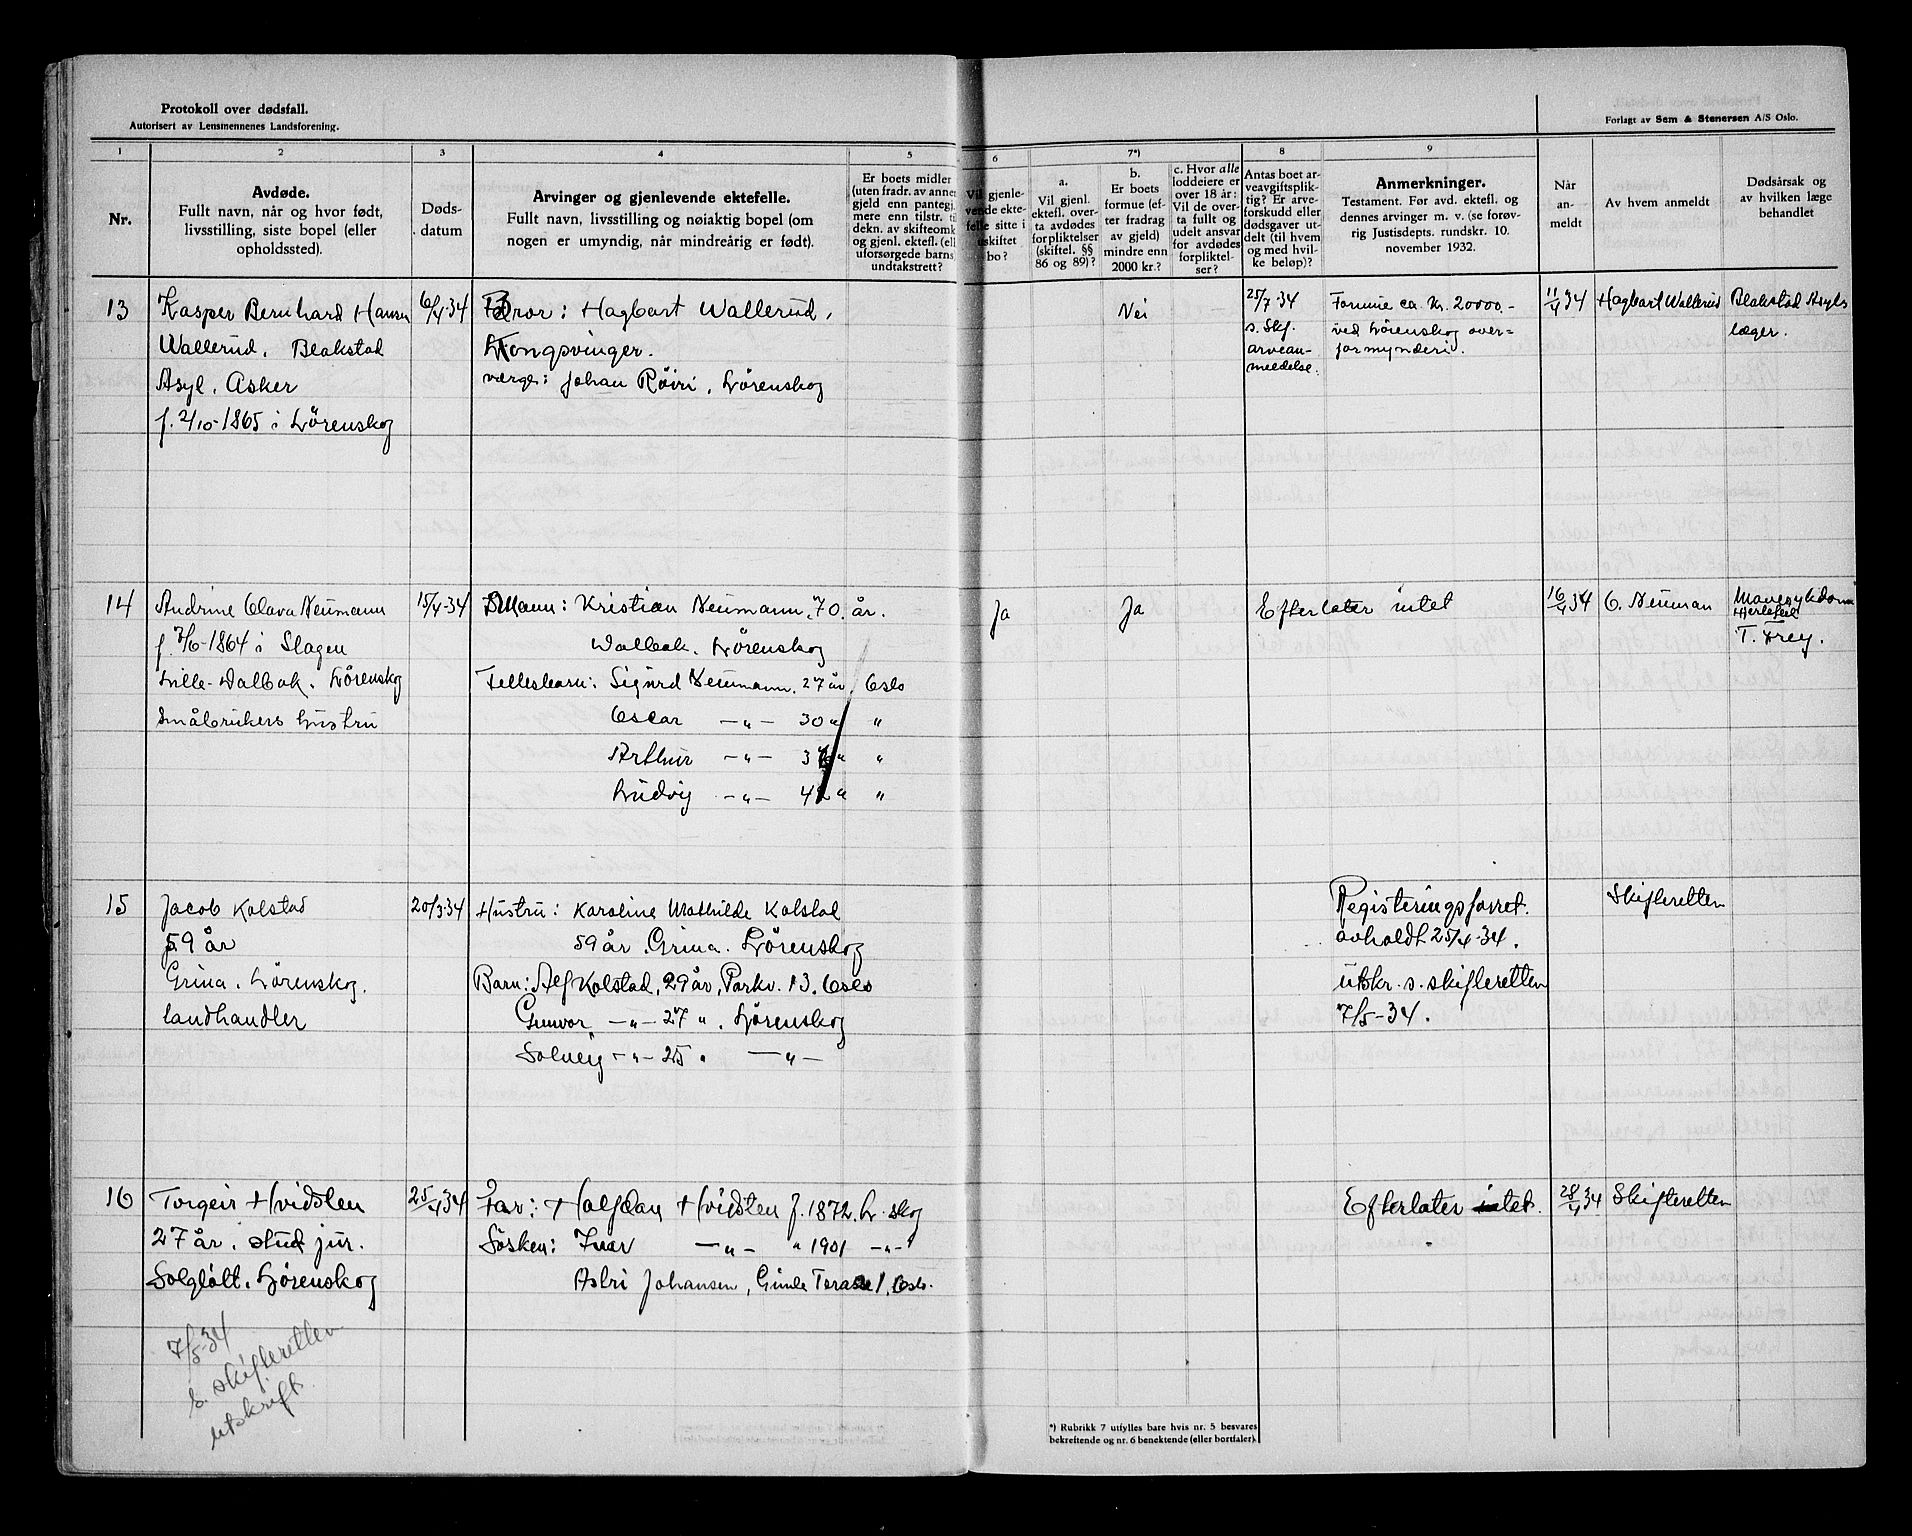 Protokoll over dødsfall.
Autorisert av Lensmennenes Landsforening.
Forlagt av Sem & Stenersen A/S Oslo.
1
2
3
4
5
6
7*)
8
9
Nr.
Avdøde.
Fullt navn, når og hvor født,
livsstilling, siste bopel (eller
opholdssted).
Døds-
datum
Arvinger og gjenlevende ektefelle.
Fullt navn, livsstilling og nøiaktig bopel (om
nogen er umyndig, når mindreårig er født).
Er boets midler
(uten fradr. av annen
gjeld enn pantegj.
mere enn tilstr. til
dekn. av skifteomk.
og gjenl. ektefl. (ell
uforsørgede barns)
undtakstrett?
Vil gjenle-
vende ekte-
felle sitte i
uskiftet
bo?
a.
Vil gjenl.
ektefl. over-
ta avdødes
forpliktelser
(skiftel. §§
86 og 89)?
b.
Er boets
formue (ef-
ter fradrag
av gjeld)
mindre enn
2000 kr.?
c. Hvor alle
loddeiere er
over 18 år:
Vil de over-
ta fullt og
udelt ansvar
for avdødes
forpliktel-
ser?
Antas boet ar-
veavgiftsplik-
tig? Er arve-
forskudd eller
dødsgaver ut-
delt (til hvem
og med hvil-
ke beløp)?
Anmerkninger.
Testament. Før avd. ektefl. og
dennes arvinger m. v. (se forøv-
rig Justisdepts. rundskr. 10.
november 1932.
Når
an-
meldt
Av hvem anmeldt
Dødsårsak og
av hvilken læge
behandlet
13
Kasper Bernhard Hansen
Wallerud, Blakstad
Asyl, Asker
f. 2/10-1865 i Lörenskog
6/4-34
Bror: Hagbart Wallerud,
Kongsvinger.
værge: Johan Röiri, Lörenskog
Nei
25/7 34
s. Skj.
arvean-
meldelse.
Formue ca. kr. 20000.-
ved Lörenskog over-
formynderi.
11/4 34
Hagbart Wallerud
Blakstad Asyls
læger.
14
Andrine Olava Neumann
f. 7/6-1864 i Slagen
Lille-Valbak, Lörenskog
Småbrukers hustru
15/4-34
Mann: Kristian Neumann, 70 år.
Walbak, Lörenskog
Fellesbarn: Sigurd Neumann, 27 år, Oslo
Oscar -"- 30 " "
Arthur -"- 36 " "
Ludvig -"- 42 " "
Ja
Ja
Efterlater intet
16/4 34
O. Neuman
Mavesykdom
Hjertefeil
T. Frey.
15
Jacob Kolstad
59 år
Grina, Lörenskog.
landhandler
20/3-34
Hustru: Karoline Mathilde Kolstad
59 år, Grina, Lörenskog
Barn: Alf Kolstad, 29 år, Parkv. 13, Oslo
Gunvor -"- 27 ", Lörenskog
Solveig -"- 25 " -"-
Registeringsforret.
avholdt 25/4-34.
utskr. s. skifteretten
7/5-34.
Skifteretten
16
Torgeir Hvidsten
27 år, stud jur.
Solgløtt, Lörenskog
25/4 34
Far: Halfdan Hvidsten f. 1872, L.skog
Sösken: Ivar -"- " 1901 -"-
Astri Johansen, Gimle Terasse 1, Oslo.
Efterlater intet.
28/4 34
Skifteretten
7/5-34
s. skifteretten
utskrift.
*) Rubrikk 7 utfylles bare hvis nr. 5 besvares
bekreftende og nr. 6 benektende (eller bortfaler).